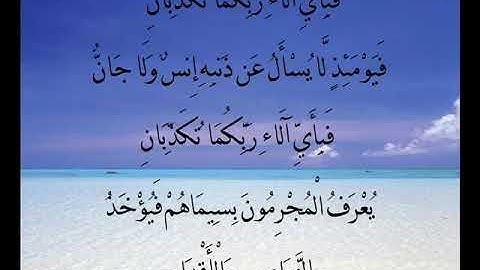 فَبِأَيِّ آلَاءِ رَبِّكُمَا تُكَذِّبَانِ
فَيَوْمَئِذٍ لَّا يُسْأَلُ عَن ذَنبِهِ إِنسٌ وَلَا جَانٌّ
فَبِأَيِّ آلَاءِ رَبِّكُمَا تُكَذِّبَانِ
يُعْرَفُ الْمُجْرِمُونَ بِسِيمَاهُمْ فَيُؤْخَذُ